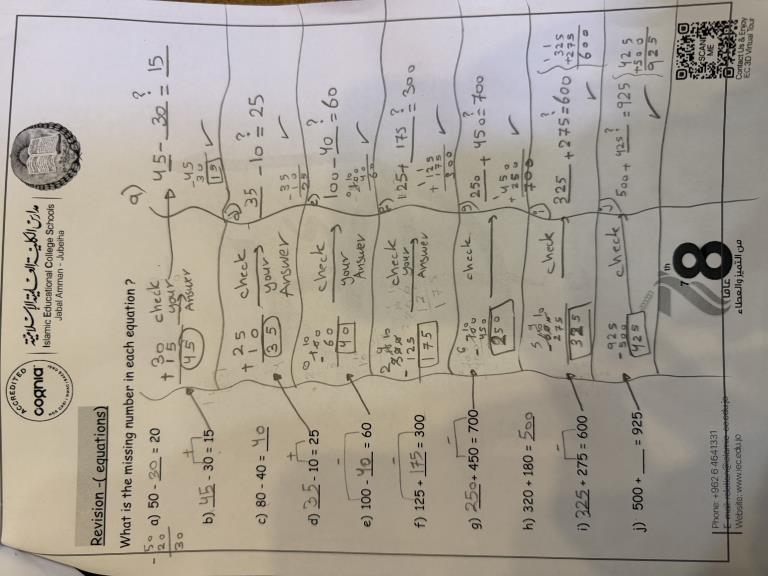 ACCREDITED
cognia
مدارس الكلية العلمية الإسلامية
Islamic Educational College Schools
Jabal Amman - Jubeiha
Revision -( equations)
What is the missing number in each equation ?
a) 50 - 30 = 20
- 50
20
30
b) 45 - 30 = 15
+
c) 80 - 40 = 40
d) 35 - 10 = 25
+
e) 100 - 40 = 60
-
f) 125 + 175 = 300
-
g) 250 + 450 = 700
-
h) 320 + 180 = 500
i) 325 + 275 = 600
-
j) 500 + ___ = 925
+ 30
15
45
check
your
Answer
a)
45 - 30 ? = 15
- 45
30
15
✓
+ 25
10
35
check
your
Answer
d)
35 - 10 ? = 25
- 35
10
25
✓
0 10
- 100
60
40
check
your
Answer
e)
100 - 40 ? = 60
0 10
- 100
40
60
✓
2 9 10
300
- 125
175
check
your
Answer
f)
125 + 175 ? = 300
1
+ 125
175
300
✓
6
- 700
450
250
check
g)
250 + 450 ? = 700
1
450
+ 250
700
✓
5 9 10
- 600
275
325
check
i)
325 + 275 ? = 600
1 1
325
+ 275
600
✓
925
- 500
425
check
j)
500 + 425 ? = 925
425
+ 500
925
✓
Phone: +962 6 4641331
Website: www.iec.edu.jo
78th
عاما
من التميز والعطاء
SCAN
ME
Contact Us & Enjoy
EC 3D Virtual Tour